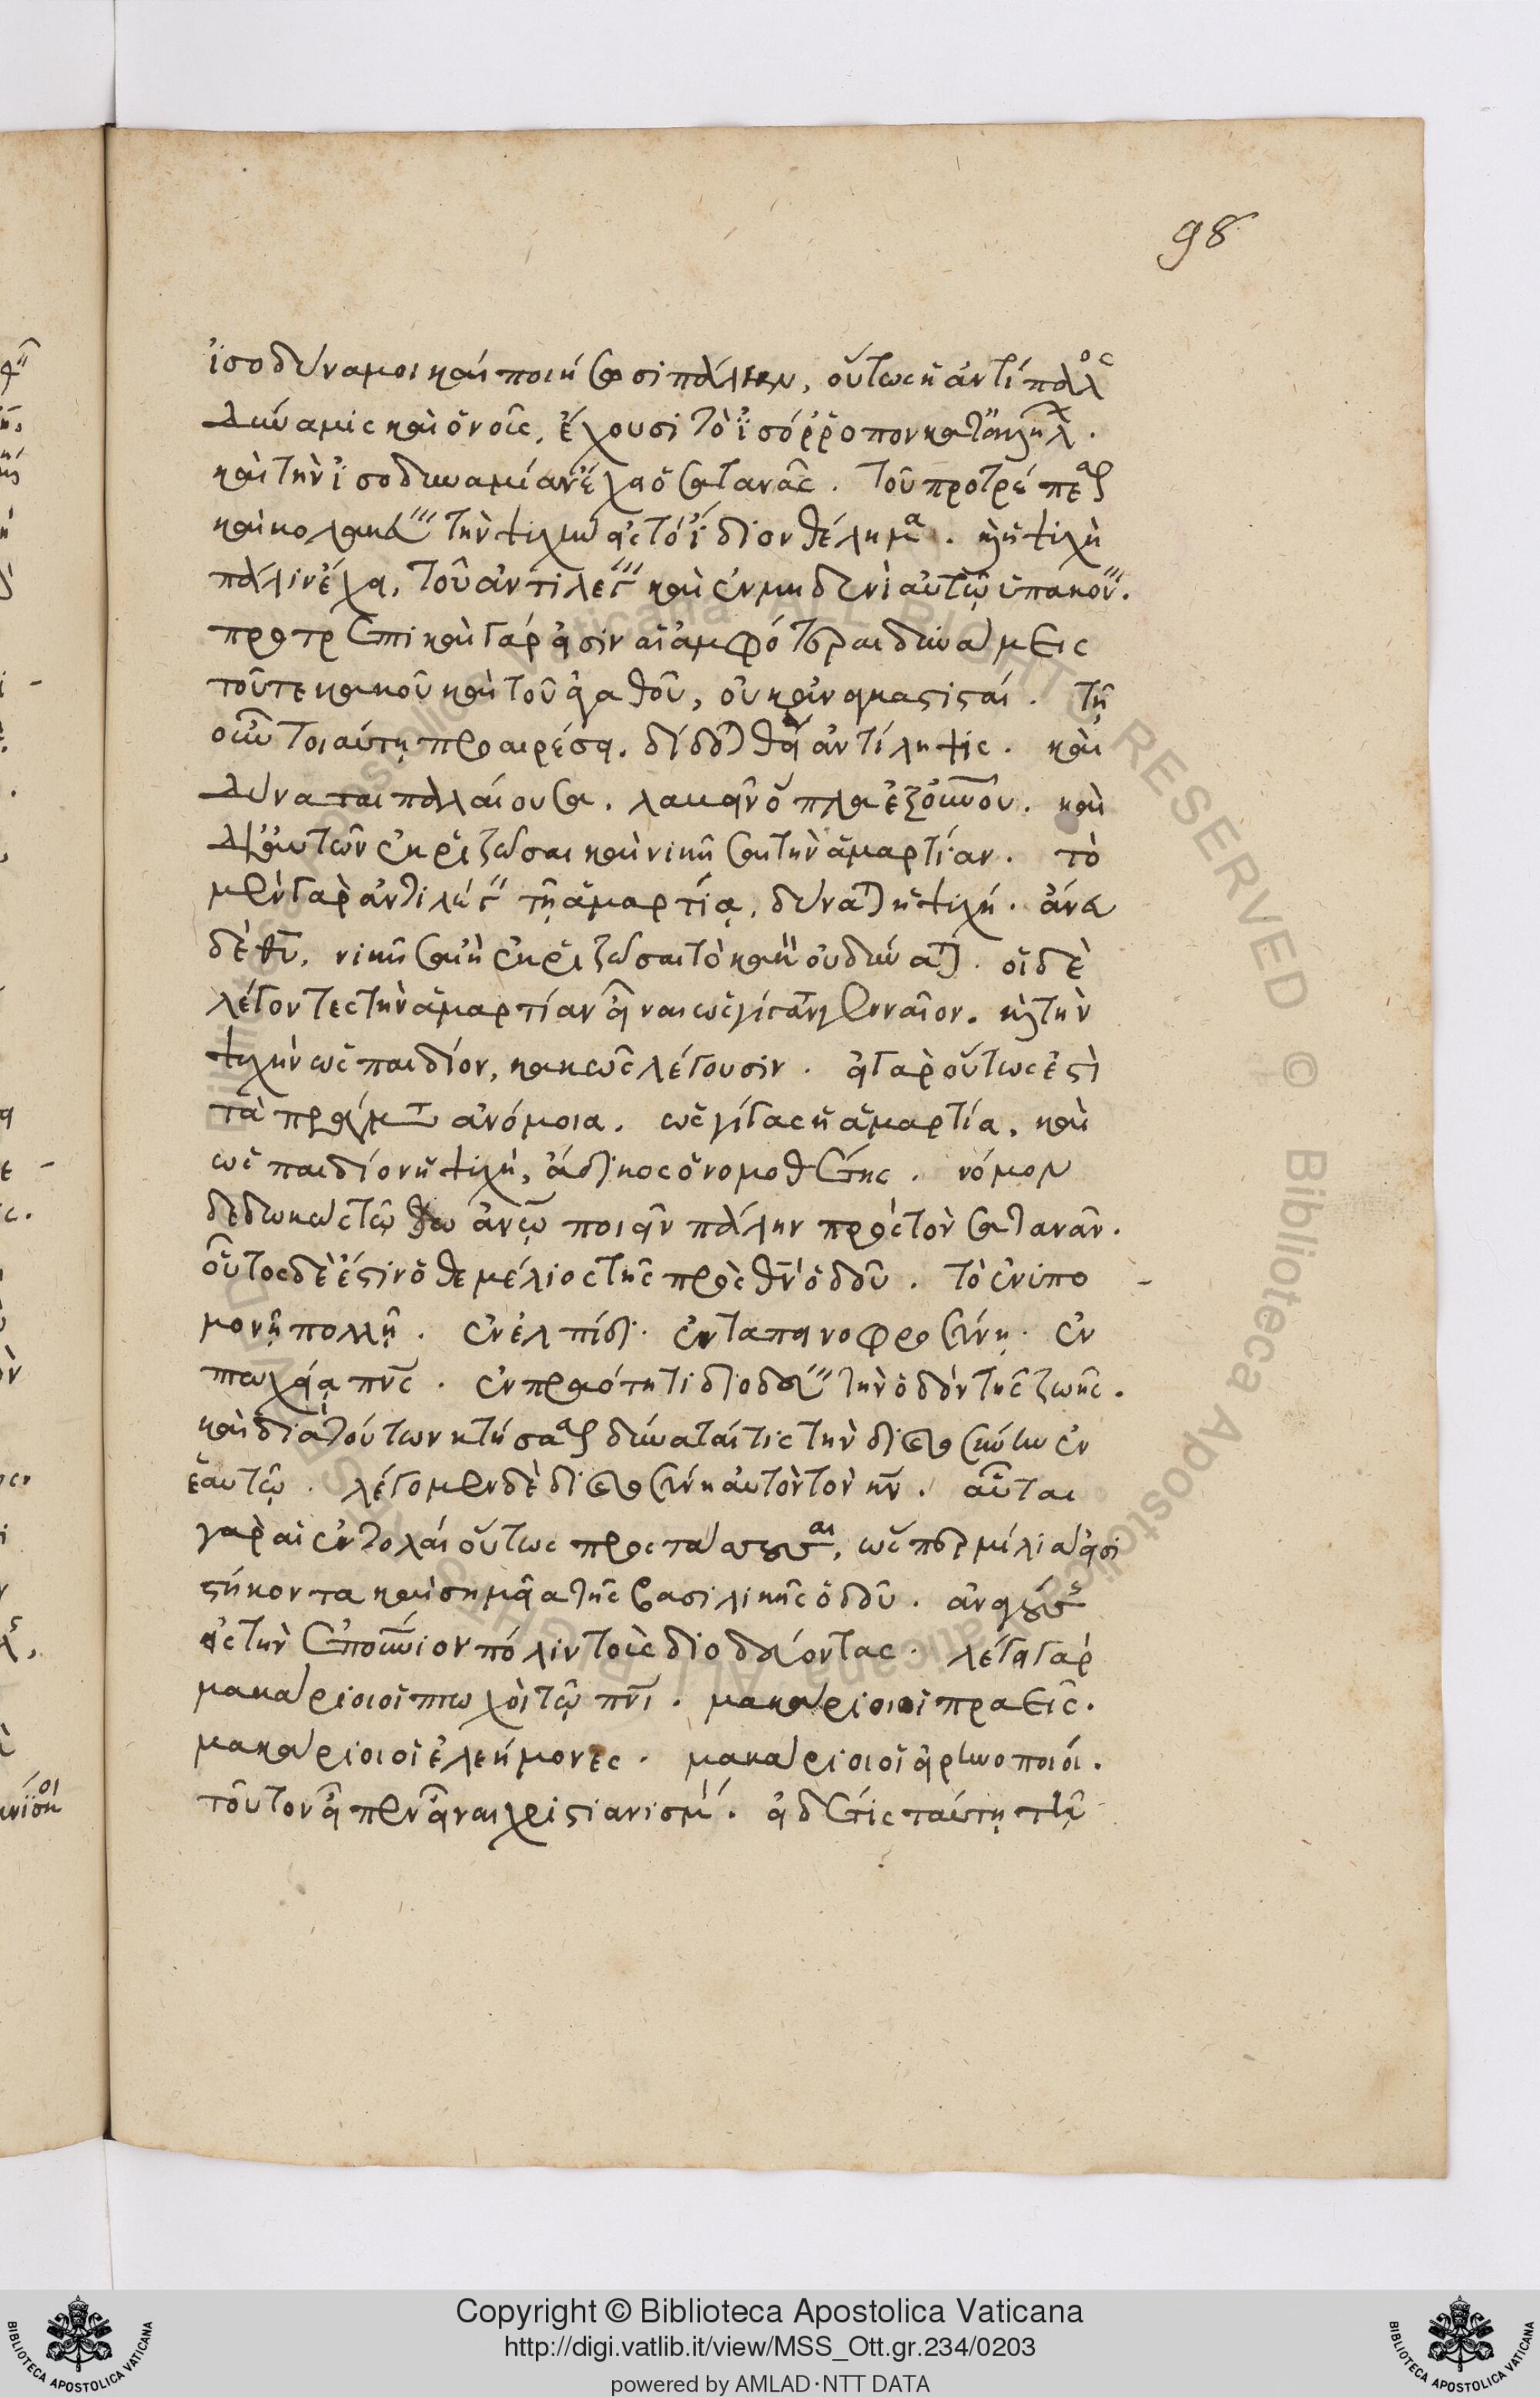 98
ἰσοδύναμοι καὶ ποιήσωσι πάλην, οὕτως ἡ ἀντίπαλος
δύναμις καὶ ὁ νοῦς, ἔχουσι τὸ ἰσόρροπον κατ
καὶ τὴν ἰσοδυναμίαν ἔχει ὁ σατανᾶς. τοῦ προτρέπεσθαι
καὶ κολακεύειν τὴν ψυχὴν εἰς τὸ ἴδιον θέλημα. καὶ ἡ ψυχὴ
πάλιν ἔχει, τοῦ ἀντιλέγειν καὶ ἐν μηδενὶ αὐτῷ ὑπακούειν.
προτρεπτικαὶ γάρ εἰσιν αἱ ἀμφότεραι δυνάμεις
τοῦ τε κακοῦ καὶ τοῦ ἀγαθοῦ, οὐκ ἀναγκαστικαί. τῇ
οὖν τοιαύτῃ προαιρέσει, δίδοται θεία ἀντίληψις. καὶ
δύναται παλαίουσα, λαβεῖν ὅπλα ἐξ οὐρανοῦ. καὶ
δι' αὐτῶν ἐκριζῶσαι καὶ νικῆσαι τὴν ἁμαρτίαν. τὸ
μὲν γὰρ ἀντιλέγειν τῇ ἁμαρτίᾳ, δύναται ἡ ψυχή. ἄνευ
δὲ θυ, νικῆσαι ἢ ἐκριζῶσαι τὸ κακὸν οὐ δύναται. οἱ δὲ
λέγοντες τὴν ἁμαρτίαν εἶναι ὡς γίγαντα γενναῖον, καὶ τὴν
ψυχὴν ὡς παιδίον, κακῶς λέγουσιν. εἰ γὰρ οὕτως ἐστὶ
τὰ πράγματα ἀνόμοια, ὡς γίγας ἡ ἁμαρτία, καὶ
ὡς παιδίον ἡ ψυχή, ἄδικος ὁ νομοθέτης. νόμον
δεδωκὼς τῷ ἀνῳ ποιεῖν πάλην πρὸς τὸν σατανᾶν.
οὗτος δέ ἐστιν ὁ θεμέλιος τῆς πρὸς θν ὁδοῦ. τὸ ἐν ὑπο
μονῇ πολλῇ. ἐν ἐλπίδι. ἐν ταπεινοφροσύνῃ. ἐν
πτωχείᾳ πνς. ἐν πραότητι διοδεύειν τὴν ὁδὸν τῆς ζωῆς.
καὶ διὰ τούτων κτήσασθαι δύναταί τις τὴν δικαιοσύνην ἐν
ἑαυτῷ. λέγομεν δὲ δικαιοσύνην αὐτὸν τὸν κν. αὗται
γὰρ αἱ ἐντολαὶ οὕτως προστάσσουσαι, ὥσπερ μίλιά εἰσι
στήκοντα καὶ σημεῖα τῆς βασιλικῆς ὁδοῦ. ἄγουσαι
εἰς τὴν ἐπουράνιον πόλιν τοὺς διοδεύοντας. λέγει γάρ
μακάριοι οἱ πτωχοὶ τῷ πνι. μακάριοι οἱ πραεῖς.
μακάριοι οἱ ἐλεήμονες. μακάριοι οἱ εἰρηνοποιοί.
τοῦτον εἶπεν εἶναι χριστιανισμόν. εἰ δέ τις ταύτῃ τῇ
Copyright © Biblioteca Apostolica Vaticana
http://digi.vatlib.it/view/MSS_Ott.gr.234/0203
powered by AMLAD·NTT DATA